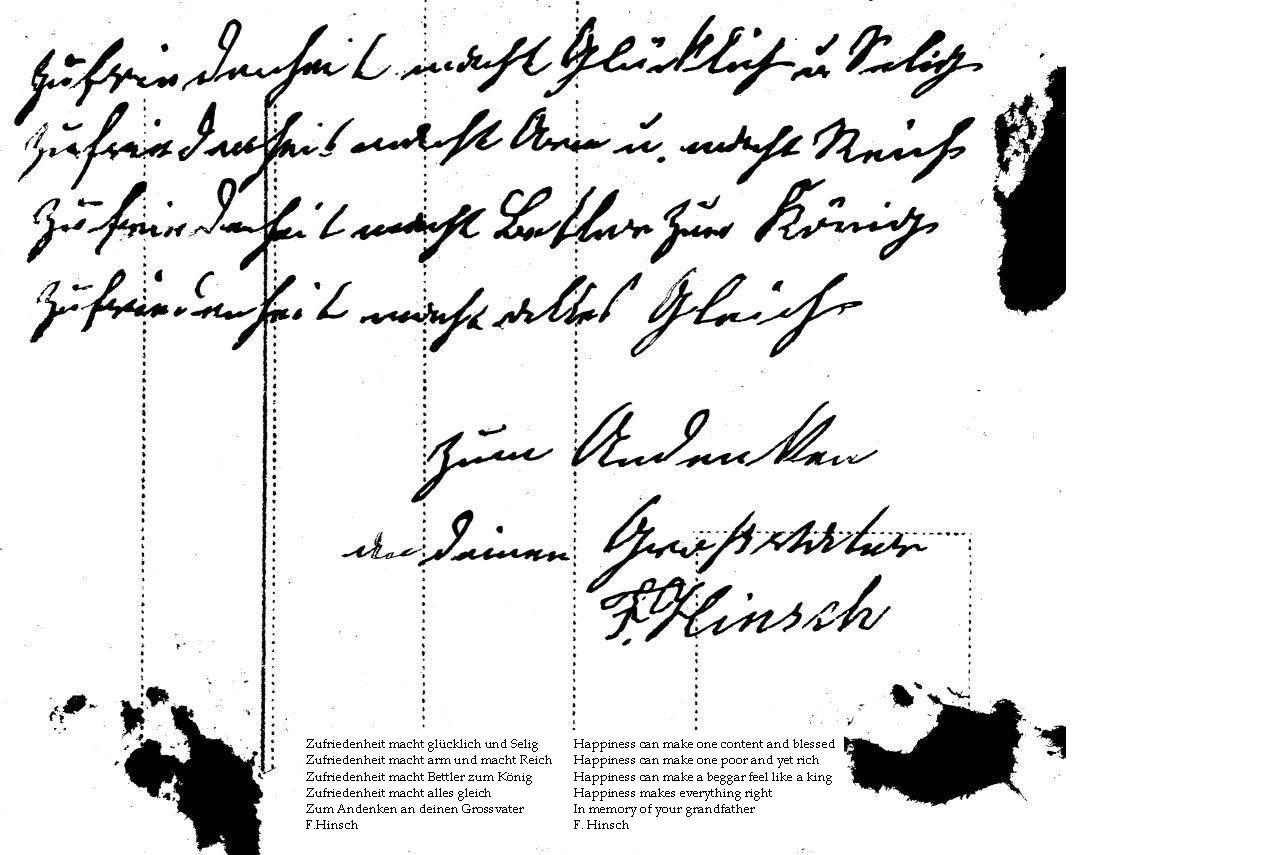 Zufriedenheit macht Glücklich u Selig
Zufriedenheit macht Arm u. macht Reich
Zufriedenheit macht Bettler zum König
Zufriedenheit macht alles Gleich
Zum Andenken
an deinen Großvater
F. Hinsch
Zufriedenheit macht glücklich und Selig
Zufriedenheit macht arm und macht Reich
Zufriedenheit macht Bettler zum König
Zufriedenheit macht alles gleich
Zum Andenken an deinen Grossvater
F.Hinsch
Happiness can make one content and blessed
Happiness can make one poor and yet rich
Happiness can make a beggar feel like a king
Happiness makes everything right
In memory of your grandfather
F. Hinsch